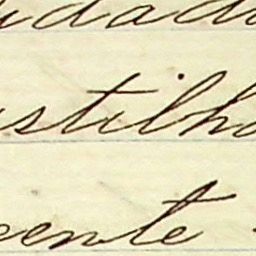 idada
stilho
cente